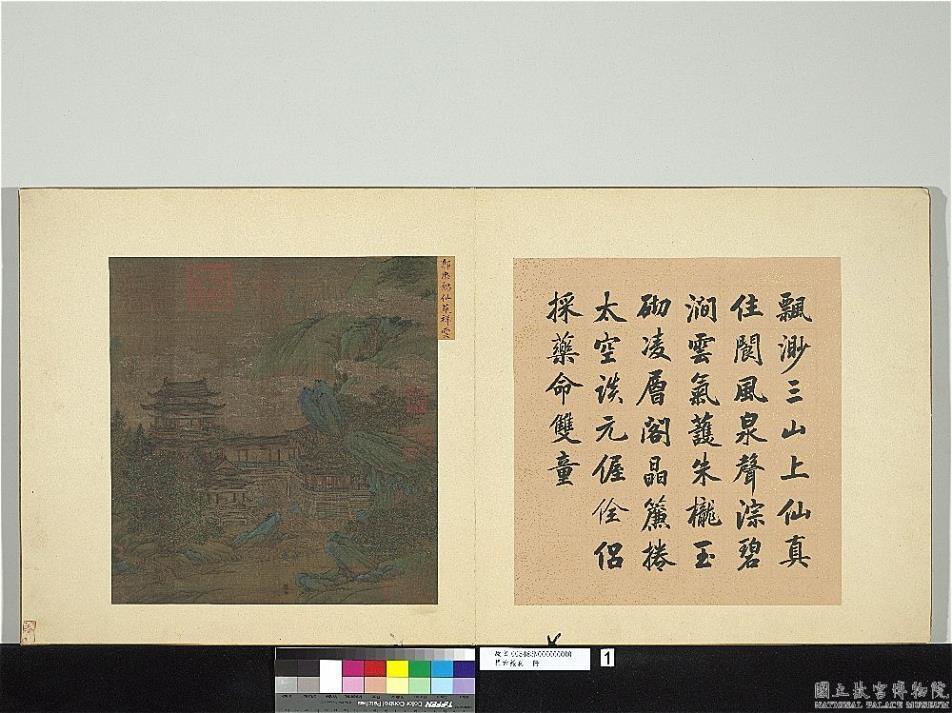 飄渺三山上仙真
住閬風泉聲淙碧
澗雲氣護朱櫳玉
砌凌層閣晶簾捲
太空談元偓佺侶
採藥命雙童
郭忠恕仙
TIFFEN Color Control Patches
1
國立故宮博物院
NATIONAL PALACE MUSEUM